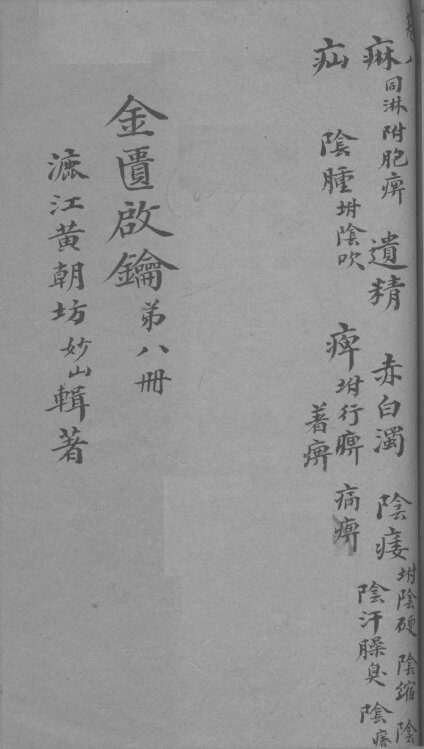 痳同淋附胞痹 遺精 赤白濁 陰痿坿陰硬 陰縮 陰
陰汗臊臭 陰
疝 陰腫坿陰吹 痺坿行痹 著痹 痛痹
金匱啟鑰 弟八冊
漉江黃朝坊妙山輯著